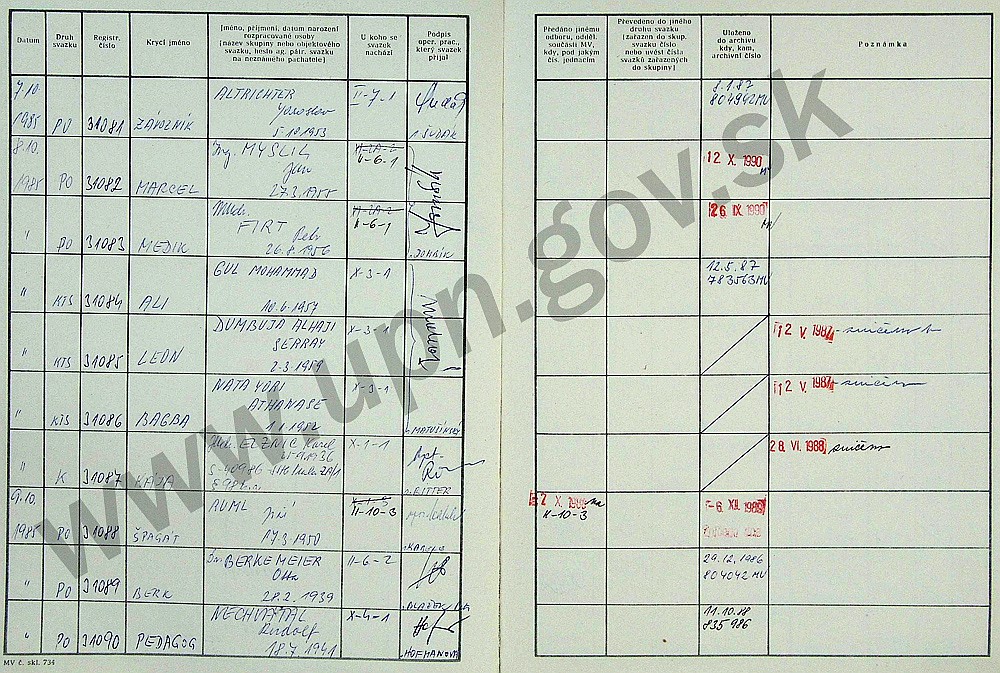 Datum
Druh svazku
Registr. číslo
Krycí jméno
Jméno, příjmení, datum narození
rozpracované osoby
(název skupiny nebo objektového
svazku, heslo ag. pátr. svazku
na neznámého pachatele)
U koho se
svazek
nachází
Podpis
oper. prac.,
který svazek
přijal
Předáno jinému
odboru, odděl.
součásti MV,
kdy, pod jakým
čís. jednacím
Převedeno do jiného
druhu svazku
(zařazen do skup.
svazku číslo
nebo uvést čísla
svazků zařazených
do skupiny)
Uloženo
do archivu
kdy, kam,
archivní číslo
Poznámka
7.10.
1985 PO 31081 ZÁVOZNÍK
ALTRICHTER
Jaroslav
5.10.1953
II-7-1
ŠUDÁK
8.1.87
804942 MV
8.10.
1985 PO 31082 MARCEL
Ing. MYSLIL
Jan
27.3.1955
II-6-1
12 X. 1990
MV
" PO 31083 MEDIK
MUDr.
FIRT Petr
26.8.1956
II-6-1
26 IX. 1990
MV
" KTS 31084 ALI
GUL MOHAMMAD
10.6.1957
X-3-1
12.5.87
783563 MV
" KTS 31085 LEON
DUMBUJA ALHAJI
SERRAY
2.3.1959
X-3-1
12 V. 1987 - zničeno
" KTS 31086 BAGBA
NATA YORI
ATHANASE
1.1.1952
X-3-1
MATUŠINSKÝ
12 V. 1987 - zničeno
K 31087 KÁJA
ELZNIC Karel
25.9.1936
X-1-1
RITTER
28 VI. 1988 zničeno
9.10.
1985 PO 31088 ŠPAGÁT
AUML Jiří
17.3.1950
II-10-3
2 X.
II-10-3
-6 XII.
" PO 31089 BERK
BERKEMEIER
Otto
28.2.1939
II-6-2
BLAŽEK
29.12.1986
804042 MV
" PO 31090 PEDAGOG
NECHVÁTAL
Rudolf
18.7.1941
X-4-1
HOFMANOVÁ
11.10.88
835986
MV č. skl. 734
www.upn.gov.sk